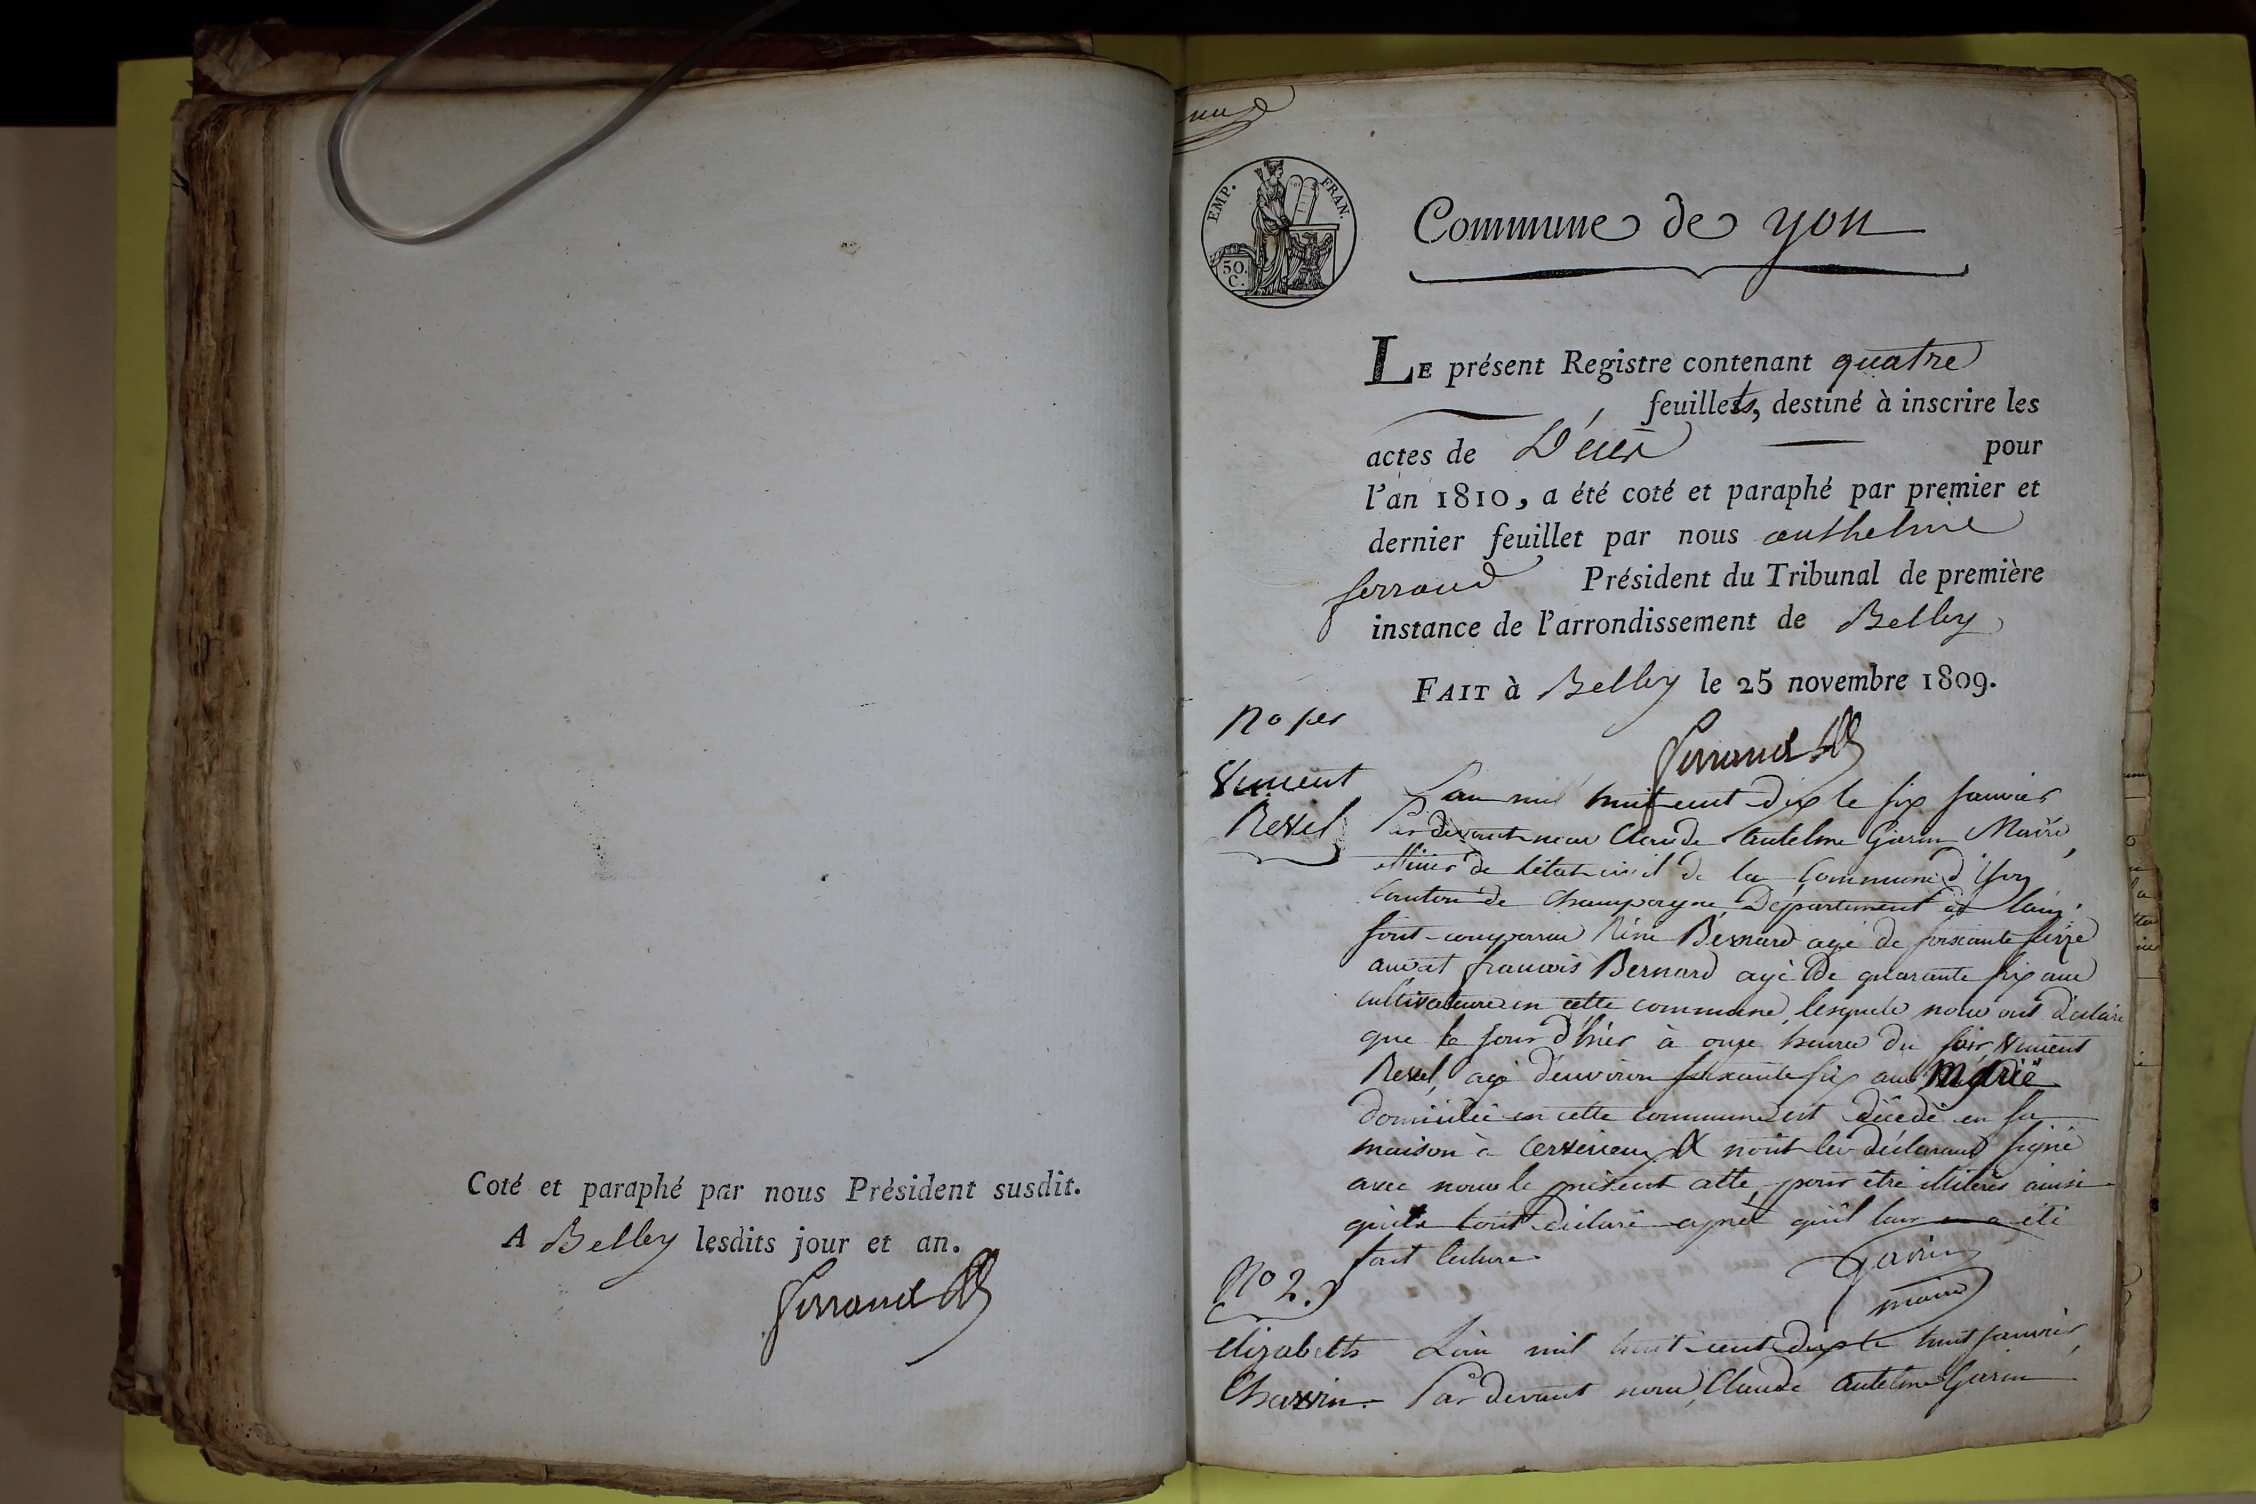 Coté et paraphé par nous Président susdit.
A Belley lesdits jour et an.
Ferrand
EMP. FRAN.
50. C.
Commune de yon
LE présent Registre contenant quatre
feuillets, destiné à inscrire les
actes de Décès pour
l'an 1810, a été coté et paraphé par premier et
dernier feuillet par nous anthelme
ferrand Président du Tribunal de première
instance de l'arrondissement de Belley
FAIT à Belley le 25 novembre 1809.
Ferrand
No 1er
Vincent
Revel
L'an mil huit cent dix le six janvier
Par devant nous Claude Antelme Garin Maire,
officier de l'état civil de la Commune d'Yon
Canton de Champagne, Département de l'ain;
sont comparus Réné Bernard agé de soixante seize
ans et francois Bernard agé de quarante six ans
cultivateurs en cette commune, lesquels nous ont déclaré
que le jour d'hier à onze heures du soir Vincent
Revel, agé d'environ soixante six ans marié
domicilié en cette commune est décédé en sa
maison à Cerverieux & n'ont les déclarans signé
avec nous le présent acte, pour être illitérés ainsi
qu'ils l'ont déclaré après qu'il leur en a été
fait lecture
Garin
maire
No 2.
Elizabeth
Charvin.
L'an mil huit cent dix le huit janvier,
Par devant nous, Claude Antelme Garin